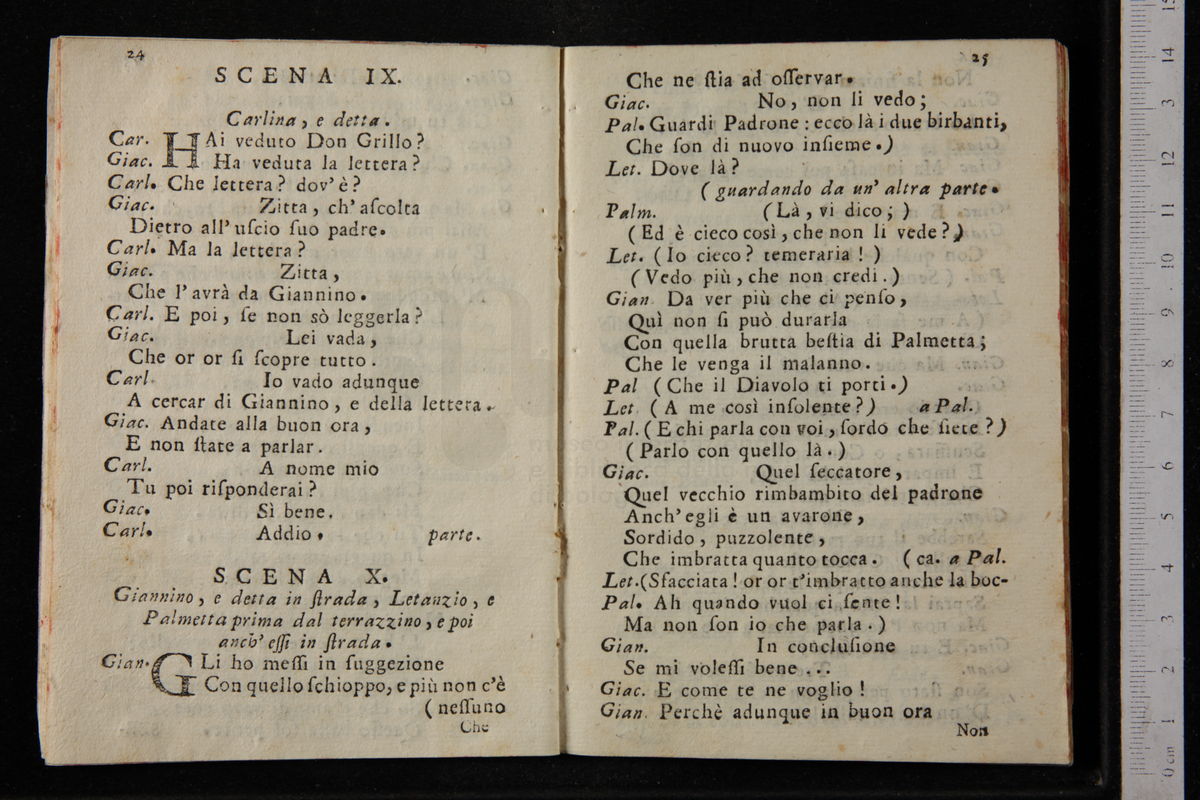 24
SCENA IX.
Carlina, e detta.
Car. HAi veduto Don Grillo?
Giac. Ha veduta la lettera?
Carl. Che lettera? dov'è?
Giac. Zitta, ch'aſcolta
Dietro all'uſcio ſuo padre.
Carl. Ma la lettera?
Giac. Zitta,
Che l'avrà da Giannino.
Carl. E poi, ſe non sò leggerla?
Giac. Lei vada,
Che or or ſi ſcopre tutto.
Carl. Io vado adunque
A cercar di Giannino, e della lettera.
Giac. Andate alla buon ora,
E non ſtate a parlar.
Carl. A nome mio
Tu poi riſponderai?
Giac. Sì bene.
Carl. Addio. parte.
SCENA X.
Giannino, e detta in ſtrada, Letanzio, e
Palmetta prima dal terrazzino, e poi
anch' eſſi in ſtrada.
Gian. GLi ho meſſi in ſuggezione
Con quello ſchioppo, e più non c'è
(neſſuno
Che
25
Che ne ſtia ad oſſervar.
Giac. No, non li vedo;
Pal. Guardi Padrone: ecco là i due birbanti,
Che ſon di nuovo inſieme.)
Let. Dove là?
(guardando da un' altra parte.
Palm. (Là, vi dico;)
(Ed è cieco così, che non li vede?)
Let. (Io cieco? temeraria!)
(Vedo più, che non credi.)
Gian. Da ver più che ci penſo,
Quì non ſi può durarla
Con quella brutta beſtia di Palmetta;
Che le venga il malanno.
Pal (Che il Diavolo ti porti.)
Let (A me così inſolente?) a Pal.
Pal. (E chi parla con voi, ſordo che ſiete?)
(Parlo con quello là.)
Giac. Quel ſeccatore,
Quel vecchio rimbambito del padrone
Anch'egli è un avarone,
Sordido, puzzolente,
Che imbratta quanto tocca. (ca. a Pal.
Let. (Sfacciata! or or t'imbratto anche la boc-
Pal. Ah quando vuol ci ſente!
Ma non ſon io che parla.)
Gian. In concluſione
Se mi voleſſi bene ...
Giac. E come te ne voglio!
Gian. Perchè adunque in buon ora
Non